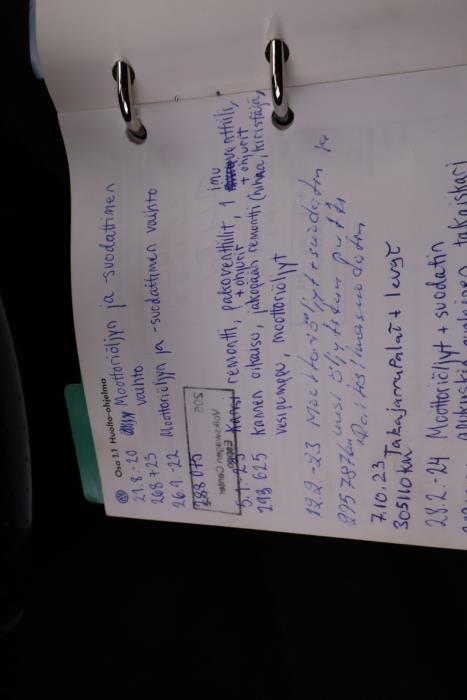 Osa 1.1 Huolto-ohjelma
21.8.-20 Moottoriöljyn ja -suodattimen
268 723 vaihto
26.9.-22 Moottoriöljyn ja -suodattimen vaihto
288 075
Volkswagen Center
Espoo
502
5.1.-23 Kansi remontti, pakoventtiilit, 1 imu venttiili,
+ ohjurit + ohjurit
293 625 kannen oikaisu, jakopään remontti (hihna, kiristäjä,
vesipumppu, moottoriöljyt
19.2.-23 Moottoriöljyt + suodatin ja
295 787km uusi öljyn
Raitisilmasuodatin
7.10.23 Takajarrupalat + levyt
305110 km
28.2.-24 Moottoriöljyt + suodatin
takaiskari